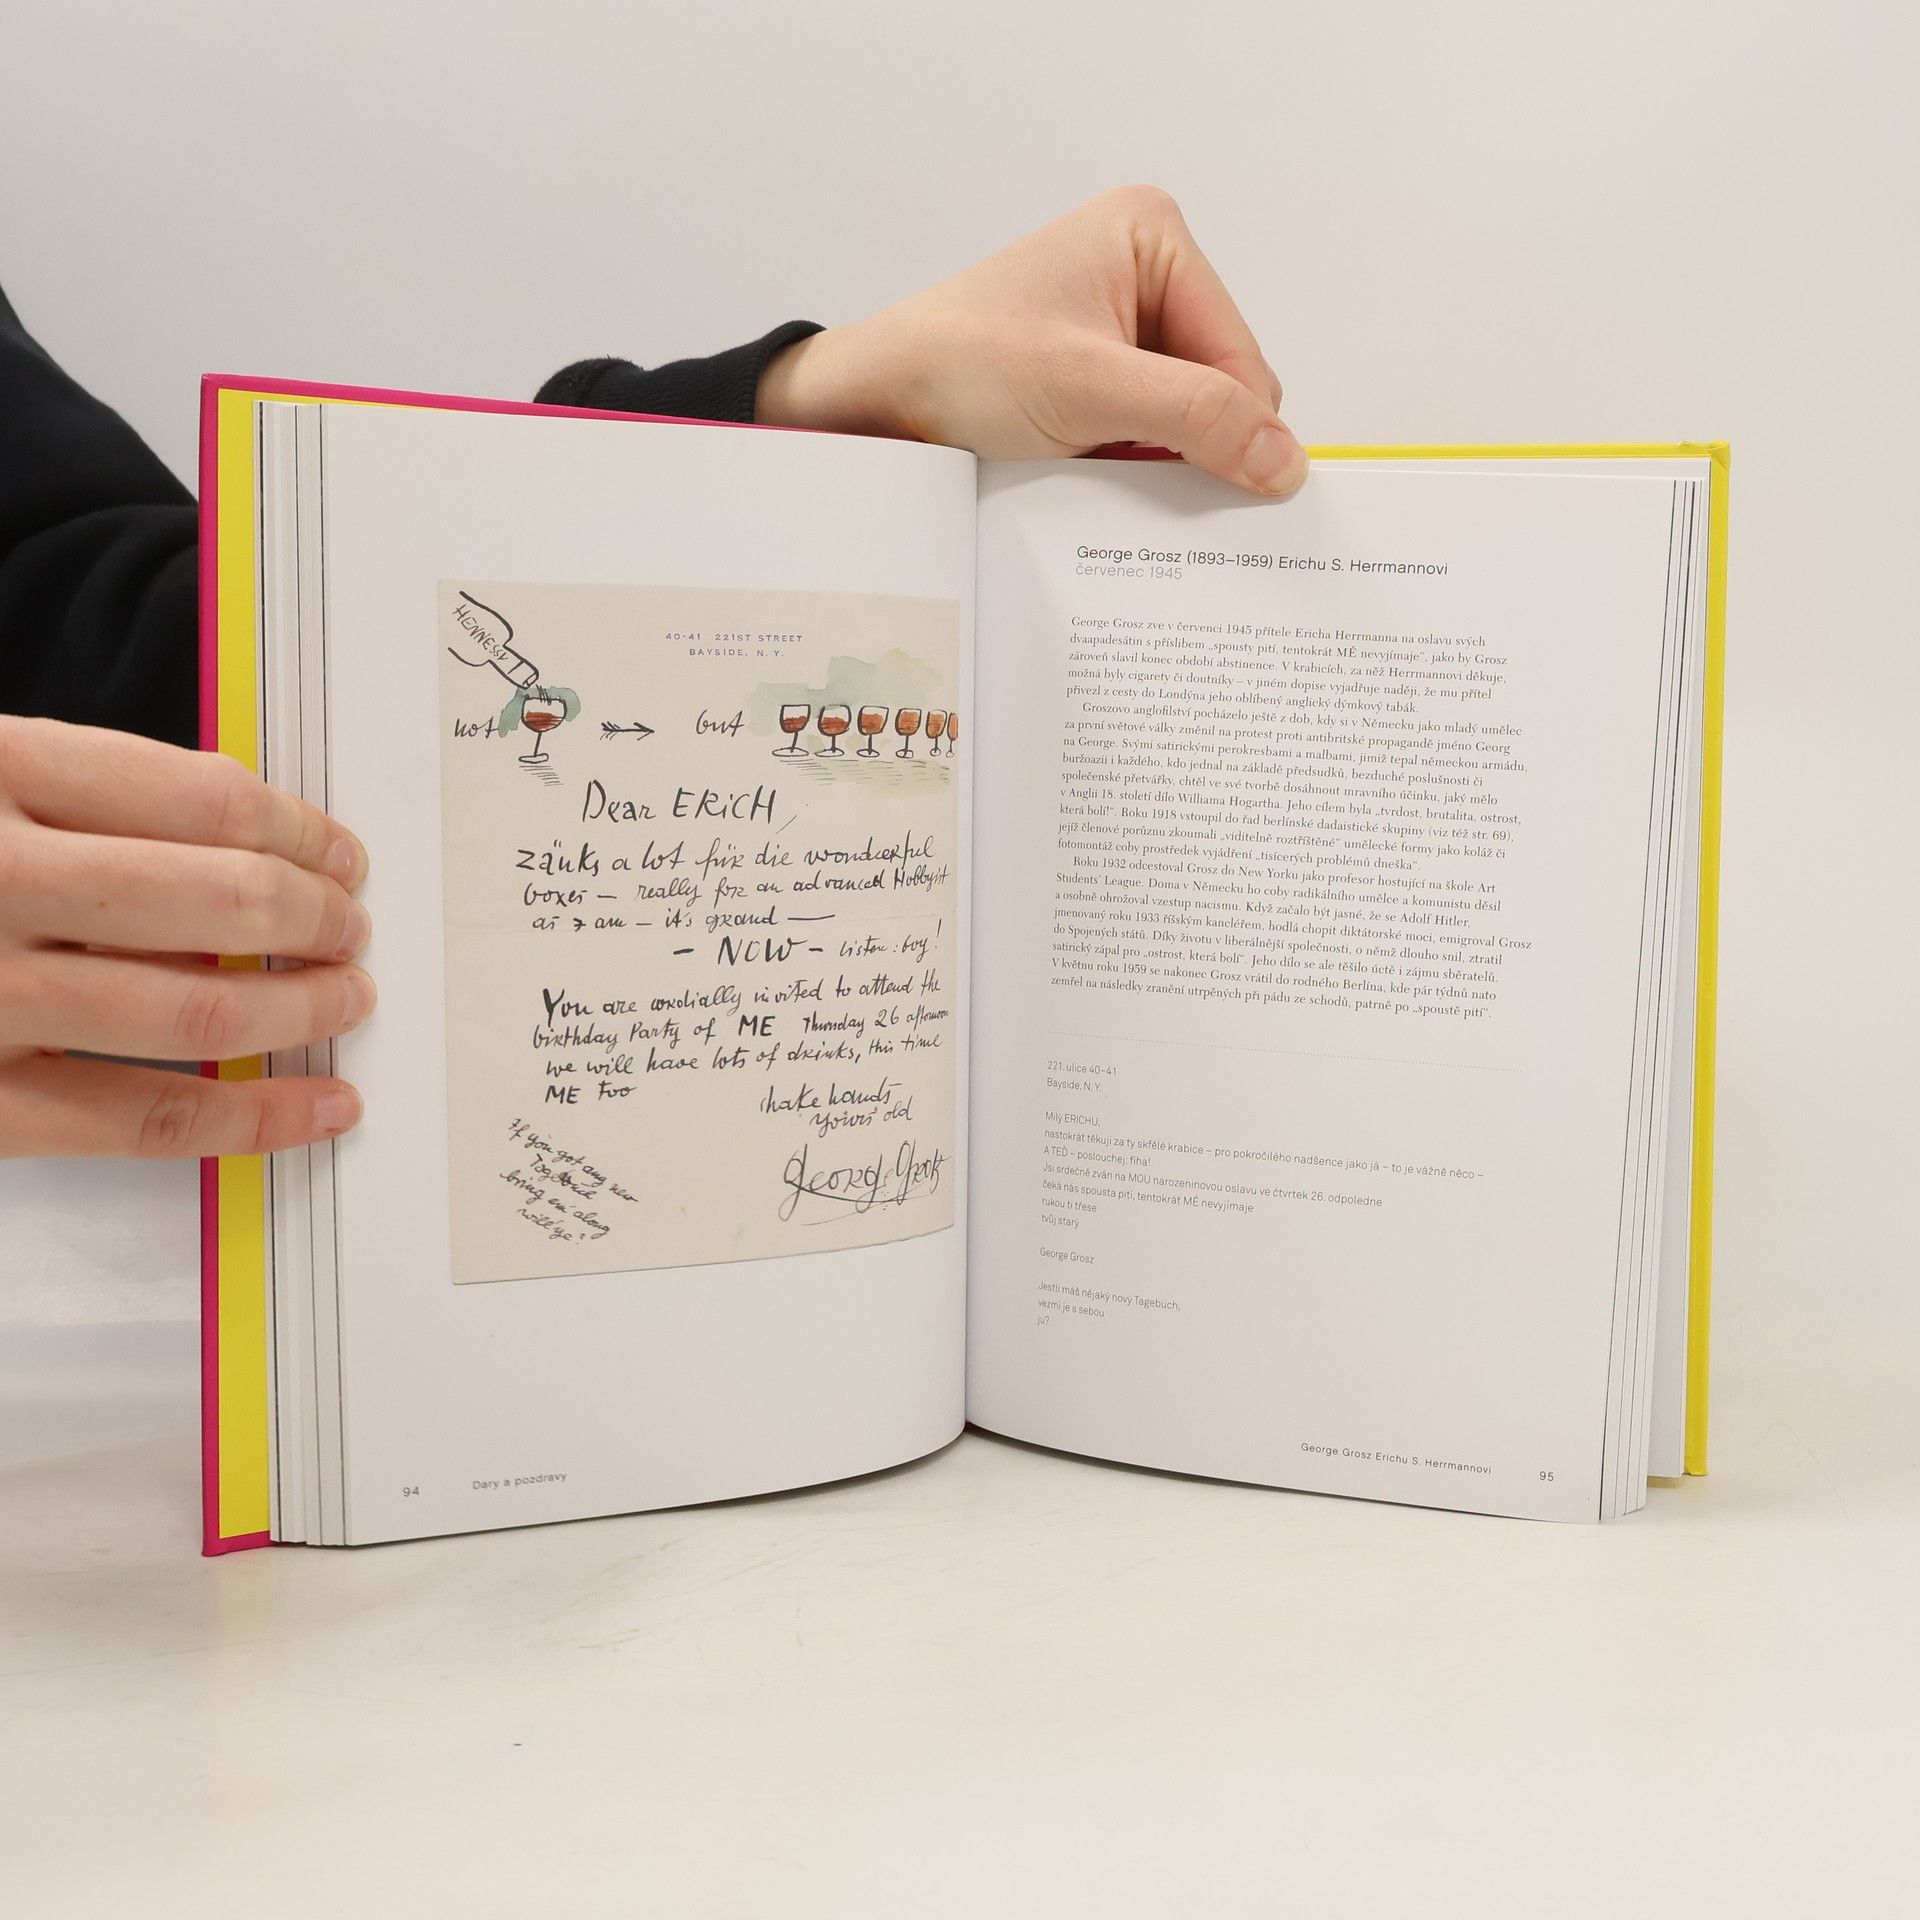 HENNESSY
40-41 221ST STREET
BAYSIDE, N. Y.
not
but
Dear ERICH,
zänks a lot für die wonderful
boxes — really for an advanced Hobbyist
as I am — it's grand —
— NOW — listen: boy!
You are cordially invited to attend the
birthday Party of ME Thursday 26 afternoon
we will have lots of drinks, this time
ME too
shake hands
yours old
George Grosz
If you got any new
Tagebuch
bring em along
will ye?
94
Dary a pozdravy
George Grosz (1893–1959) Erichu S. Herrmannovi
červenec 1945
George Grosz zve v červenci 1945 přítele Ericha Herrmanna na oslavu svých
dvaapadesátin s příslibem „spousty pití, tentokrát MĚ nevyjímaje“, jako by Grosz
zároveň slavil konec období abstinence. V krabicích, za něž Herrmannovi děkuje,
možná byly cigarety či doutníky – v jiném dopise vyjadřuje naději, že mu přítel
přivezl z cesty do Londýna jeho oblíbený anglický dýmkový tabák.
Groszovo anglofilství pocházelo ještě z dob, kdy si v Německu jako mladý umělec
za první světové války změnil na protest proti antibritské propagandě jméno Georg
na George. Svými satirickými perokresbami a malbami, jimiž tepal německou armádu,
buržoazii i každého, kdo jednal na základě předsudků, bezduché poslušnosti či
společenské přetvářky, chtěl ve své tvorbě dosáhnout mravního účinku, jaký mělo
v Anglii 18. století dílo Williama Hogartha. Jeho cílem byla „tvrdost, brutalita, ostrost,
která bolí!“. Roku 1918 vstoupil do řad berlínské dadaistické skupiny (viz též str. 69),
jejíž členové porůznu zkoumali „viditelně roztříštěné“ umělecké formy jako koláž či
fotomontáž coby prostředek vyjádření „tisícerých problémů dneška“.
Roku 1932 odcestoval Grosz do New Yorku jako profesor hostující na škole Art
Students' League. Doma v Německu ho coby radikálního umělce a komunistu děsil
a osobně ohrožoval vzestup nacismu. Když začalo být jasné, že se Adolf Hitler,
jmenovaný roku 1933 říšským kancléřem, hodlá chopit diktátorské moci, emigroval Grosz
do Spojených států. Díky životu v liberálnější společnosti, o němž dlouho snil, ztratil
satirický zápal pro „ostrost, která bolí“. Jeho dílo se ale těšilo úctě i zájmu sběratelů.
V květnu roku 1959 se nakonec Grosz vrátil do rodného Berlína, kde pár týdnů nato
zemřel na následky zranění utrpěných při pádu ze schodů, patrně po „spoustě pití“.
221. ulice 40–41
Bayside, N. Y.
Milý ERICHU,
nastokrát těkuji za ty skfělé krabice – pro pokročilého nadšence jako já – to je vážně něco –
A TEĎ – poslouchej: fiha!
Jsi srdečně zván na MOU narozeninovou oslavu ve čtvrtek 26. odpoledne
čeká nás spousta pití, tentokrát MĚ nevyjímaje
rukou ti třese
tvůj starý
George Grosz
Jestli máš nějaký nový Tagebuch,
vezmi je s sebou
ju?
George Grosz Erichu S. Herrmannovi
95